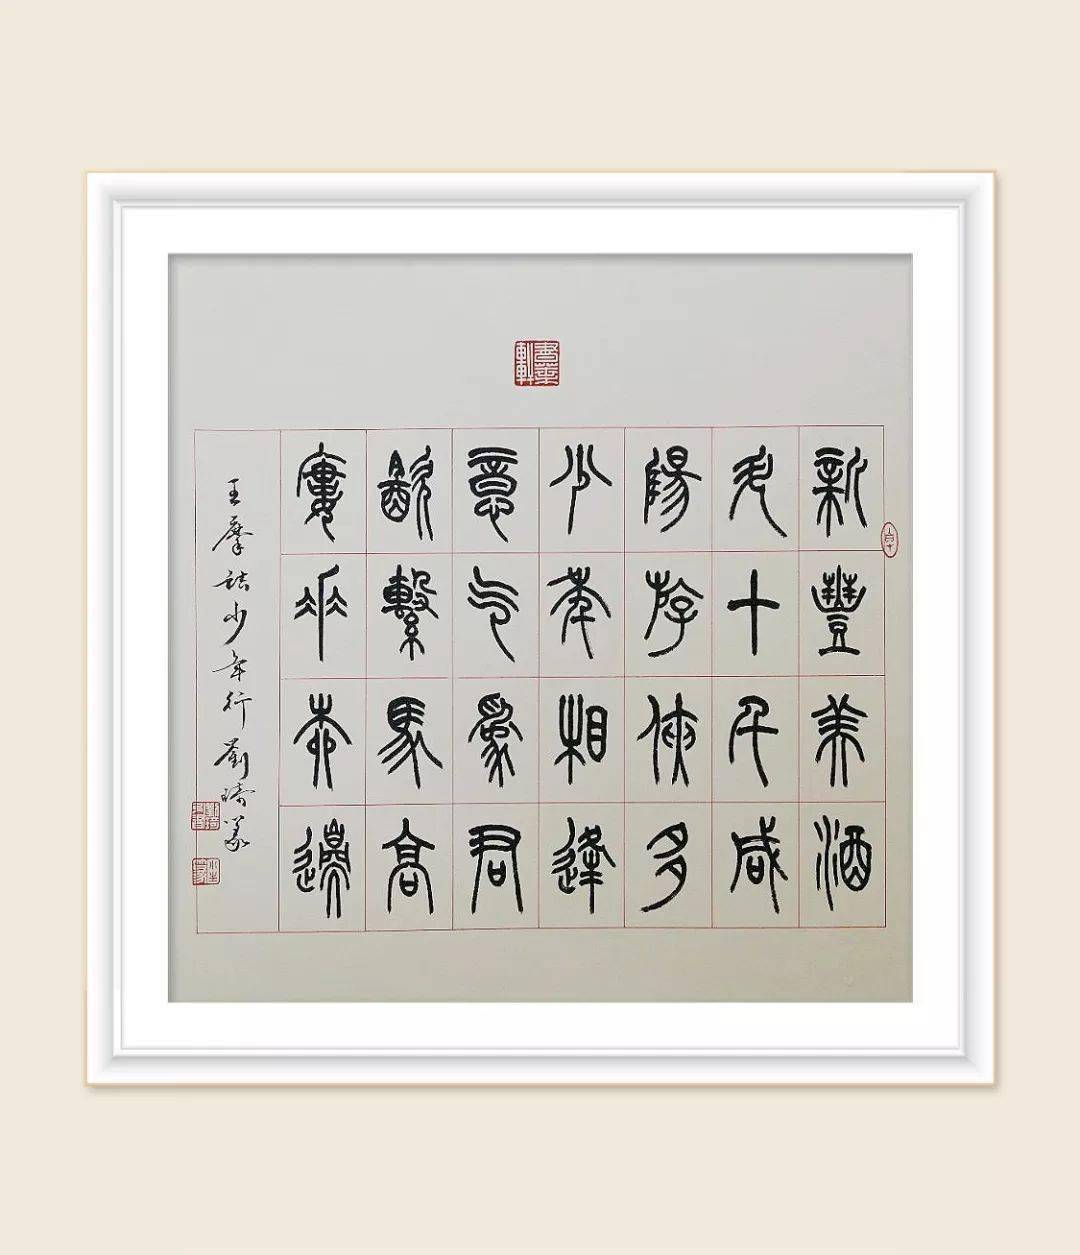 新豐美酒
斗十千咸
陽游俠多
少年相逢
意气為君
飲繫馬高
樓垂柳邊
王摩詰少年行劉琦篆